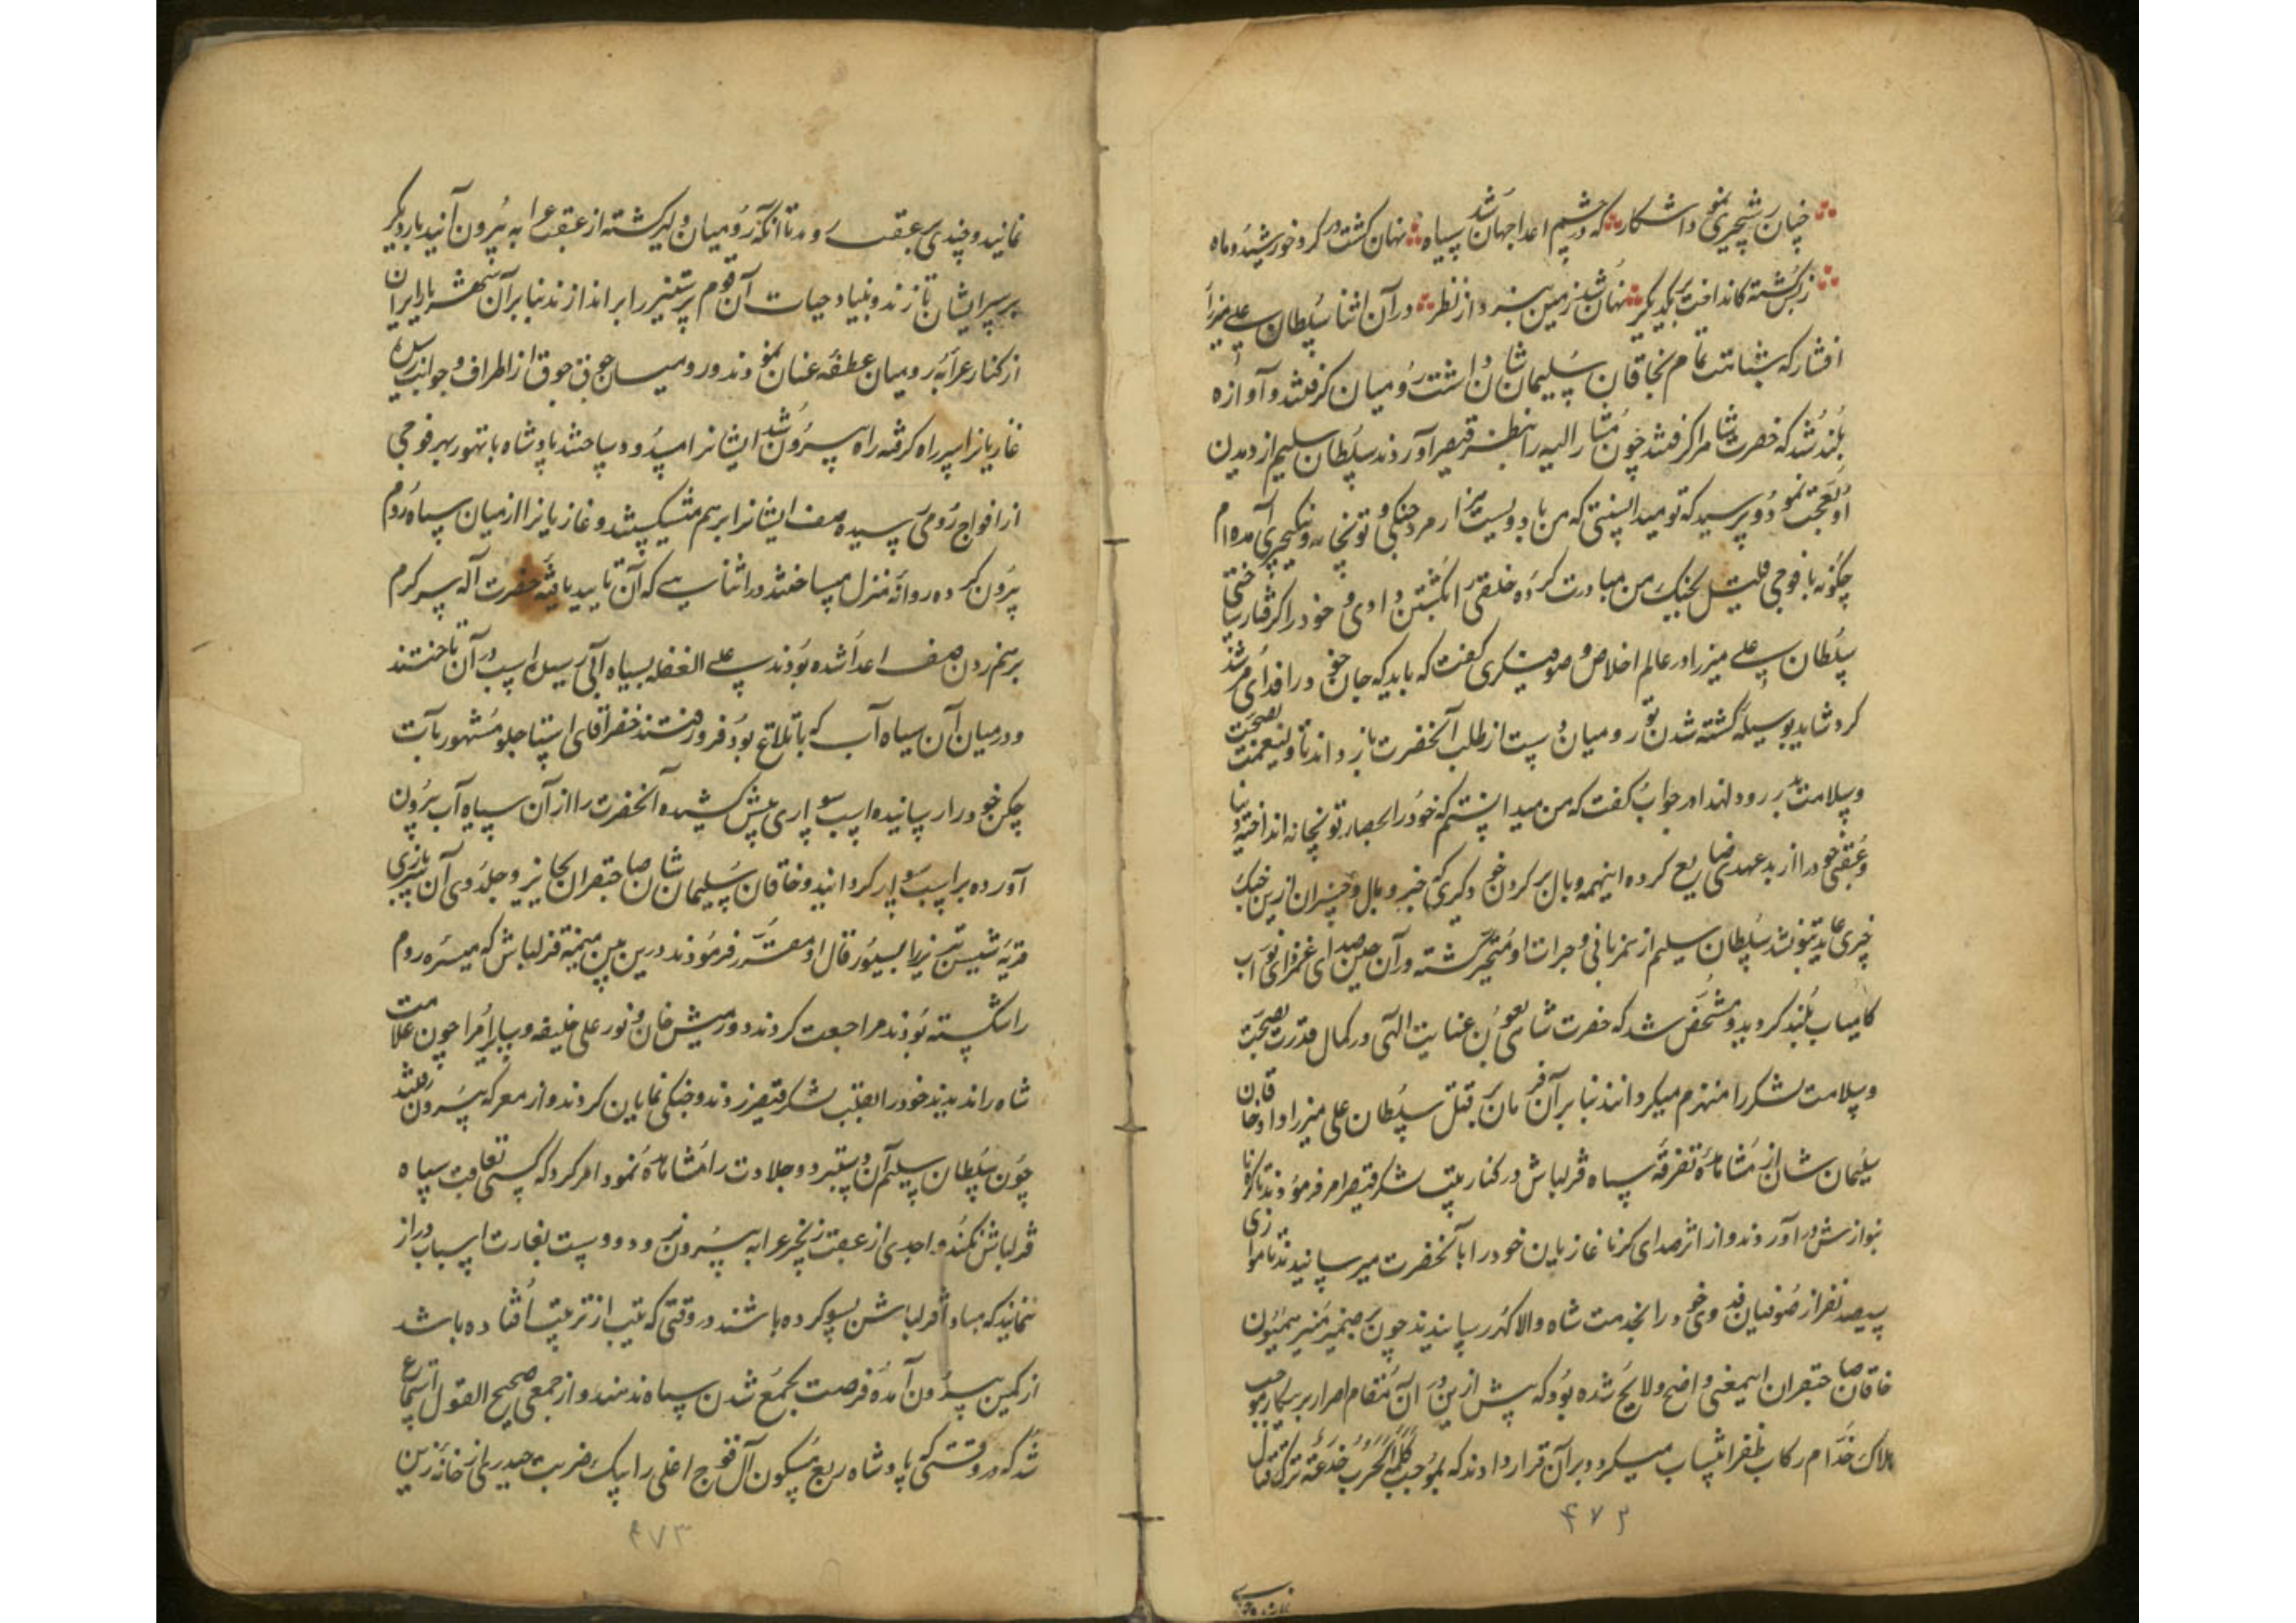 چنان رستخیزی نمود آشکار که در چشم اعدا جهان شد سیاه نهان گشت در گرد خورشید و ماه
ز بس کشته کانداخت بر یکدیگر نهان شد زمین نبرد از نظر در آن اثنا سلطان علی میرزا
افشار که شباهت تمام بخاقان سلیمان شان داشت رومیان گرفتند و آوازه
بلند شد که حضرت شاه را گرفتند چون مشار الیه را بنظر قیصر آوردند سلطان سلیم از دیدن
او تعجب نموده پرسید که تو میدانستی که من با دویست هزار مرد جنگی و توپخانه و ینکیچری آمده ام
چگونه با فوجی قلیل بجنگ من مبادرت کرده خلقی را بکشتن دادی و خود را گرفتار ساختی
سلطان علی میرزا در عالم اخلاص و صوفیگری گفت که باید که جان خود را فدای مرشد
کرد شاید بوسیله کشته شدن تو رومیان دست از طلب آنحضرت باز دارند تا ولینعمت بصحت
و سلامت بدر رود لهذا در جواب گفت که من میدانستم که خود را بحصار توپخانه انداخته دنیا
و عقبی خود را از بد عهدی ضایع کرده اینهمه وبال بر گردن خود گیری که خبر وبال و خسران ازین جنگ
چیزی عاید تو نشد سلطان سلیم از همزبانی و جرات او متحیر گشته در آن حین صدای غمفزای نواب
کامیاب بلند گردید و مشخص شد که حضرت شاهی بعون عنایت الهی در کمال قدرت بصحت
و سلامت لشکر را منهزم میگردانند بنا بر آن فرمان بر قتل سلطان علی میرزا داد و خاقان
سلیمان شان از مشاهده تفرقه سپاه قزلباش در کنار تیپ لشکر قیصر امر فرمودند تا کرنا
بنوازش در آوردند و از اثر صدای کرنا غازیان خود را بآنحضرت میرسانیدند تا موازی
سیصد نفر از صوفیان فدوی خود را بخدمت شاه والا گهر رسانیدند چون بر ضمیر منیر همیون
خاقان صاحبقران اینمعنی واضح و لایح شده بود که پیش ازین در آن مقام اصرار بر پیکار موجب
هلاک خدام رکاب ظفر انتساب میگردد بر آن قرار دادند که بموجب کلمه الحرب خدعة ترک قتال
۴۷۲
نمایند و چندی بعقب روند تا آنکه رومیان دلیر گشته از عقب عرابه بیرون آیند بار دیگر
بر سر ایشان تازند و بنیاد حیات آن قوم پر ستیز را براندازند بنا بر آن شهریار ایران
از کنار عرابه رومیان عطفه عنان نمودند و رومیان جوق جوق از اطراف و جوانب
غازیانرا سر راه گرفته راه بیرون شد ایشانرا مسدود ساختند پادشاه با تهور بهر فوجی
از افواج رومی رسیده صف ایشانرا بر هم میشکستند و غازیانرا از میان سپاه روم
بیرون کرده روانه منزل میساختند در اثنایی که آن تایید یافته حضرت اله سرگرم
بر هم زدن صف اعدا شده بودند علی الغفله بسیاه آبی رسیده اسب در آن تاختند
و در میان آن سیاه آب که باتلاغ بود فرو رفتند خضر آقای استاجلو مشهور بآت
چکن خود را رسانیده اسب سواری پیش کشیده آنحضرت را از آن سیاه آب بیرون
آورده بر اسب سوار گردانید و خاقان سلیمان شان صاحبقران بجایزه و جلدوی آن
قریه شستر تبریز را بسیورغال او مقرر فرمودند درین حین میمنه قزلباش که میسره روم
را شکسته بودند مراجعت کردند دورمیش خان و نور علی خلیفه و سایر امرا چون علامت
شاه را ندیدند خود را بقلب لشکر قیصر زدند و جنگی نمایان کردند و از معرکه بیرون رفتند
چون سلطان سلیم آن دستبرد و جلادت را مشاهده نمود امر کرد که کسی تعاقب سپاه
قزلباش نکند و احدی از عقب زنجیر عرابه بیرون نرود و دست بغارت اسباب دراز
ننمایند که مبادا قزلباش بسو کرده باشند در وقتی که تیپ از ترتیب افتاده باشد
از کمین بیرون آمده فرصت بجمع شدن سپاه ندهند و از جمعی صحیح القول استماع
شد که در وقتی که پادشاه ربع مسکون آل قوج اغلی را بیک ضربت حیدری از خانه زین
۴۷۳